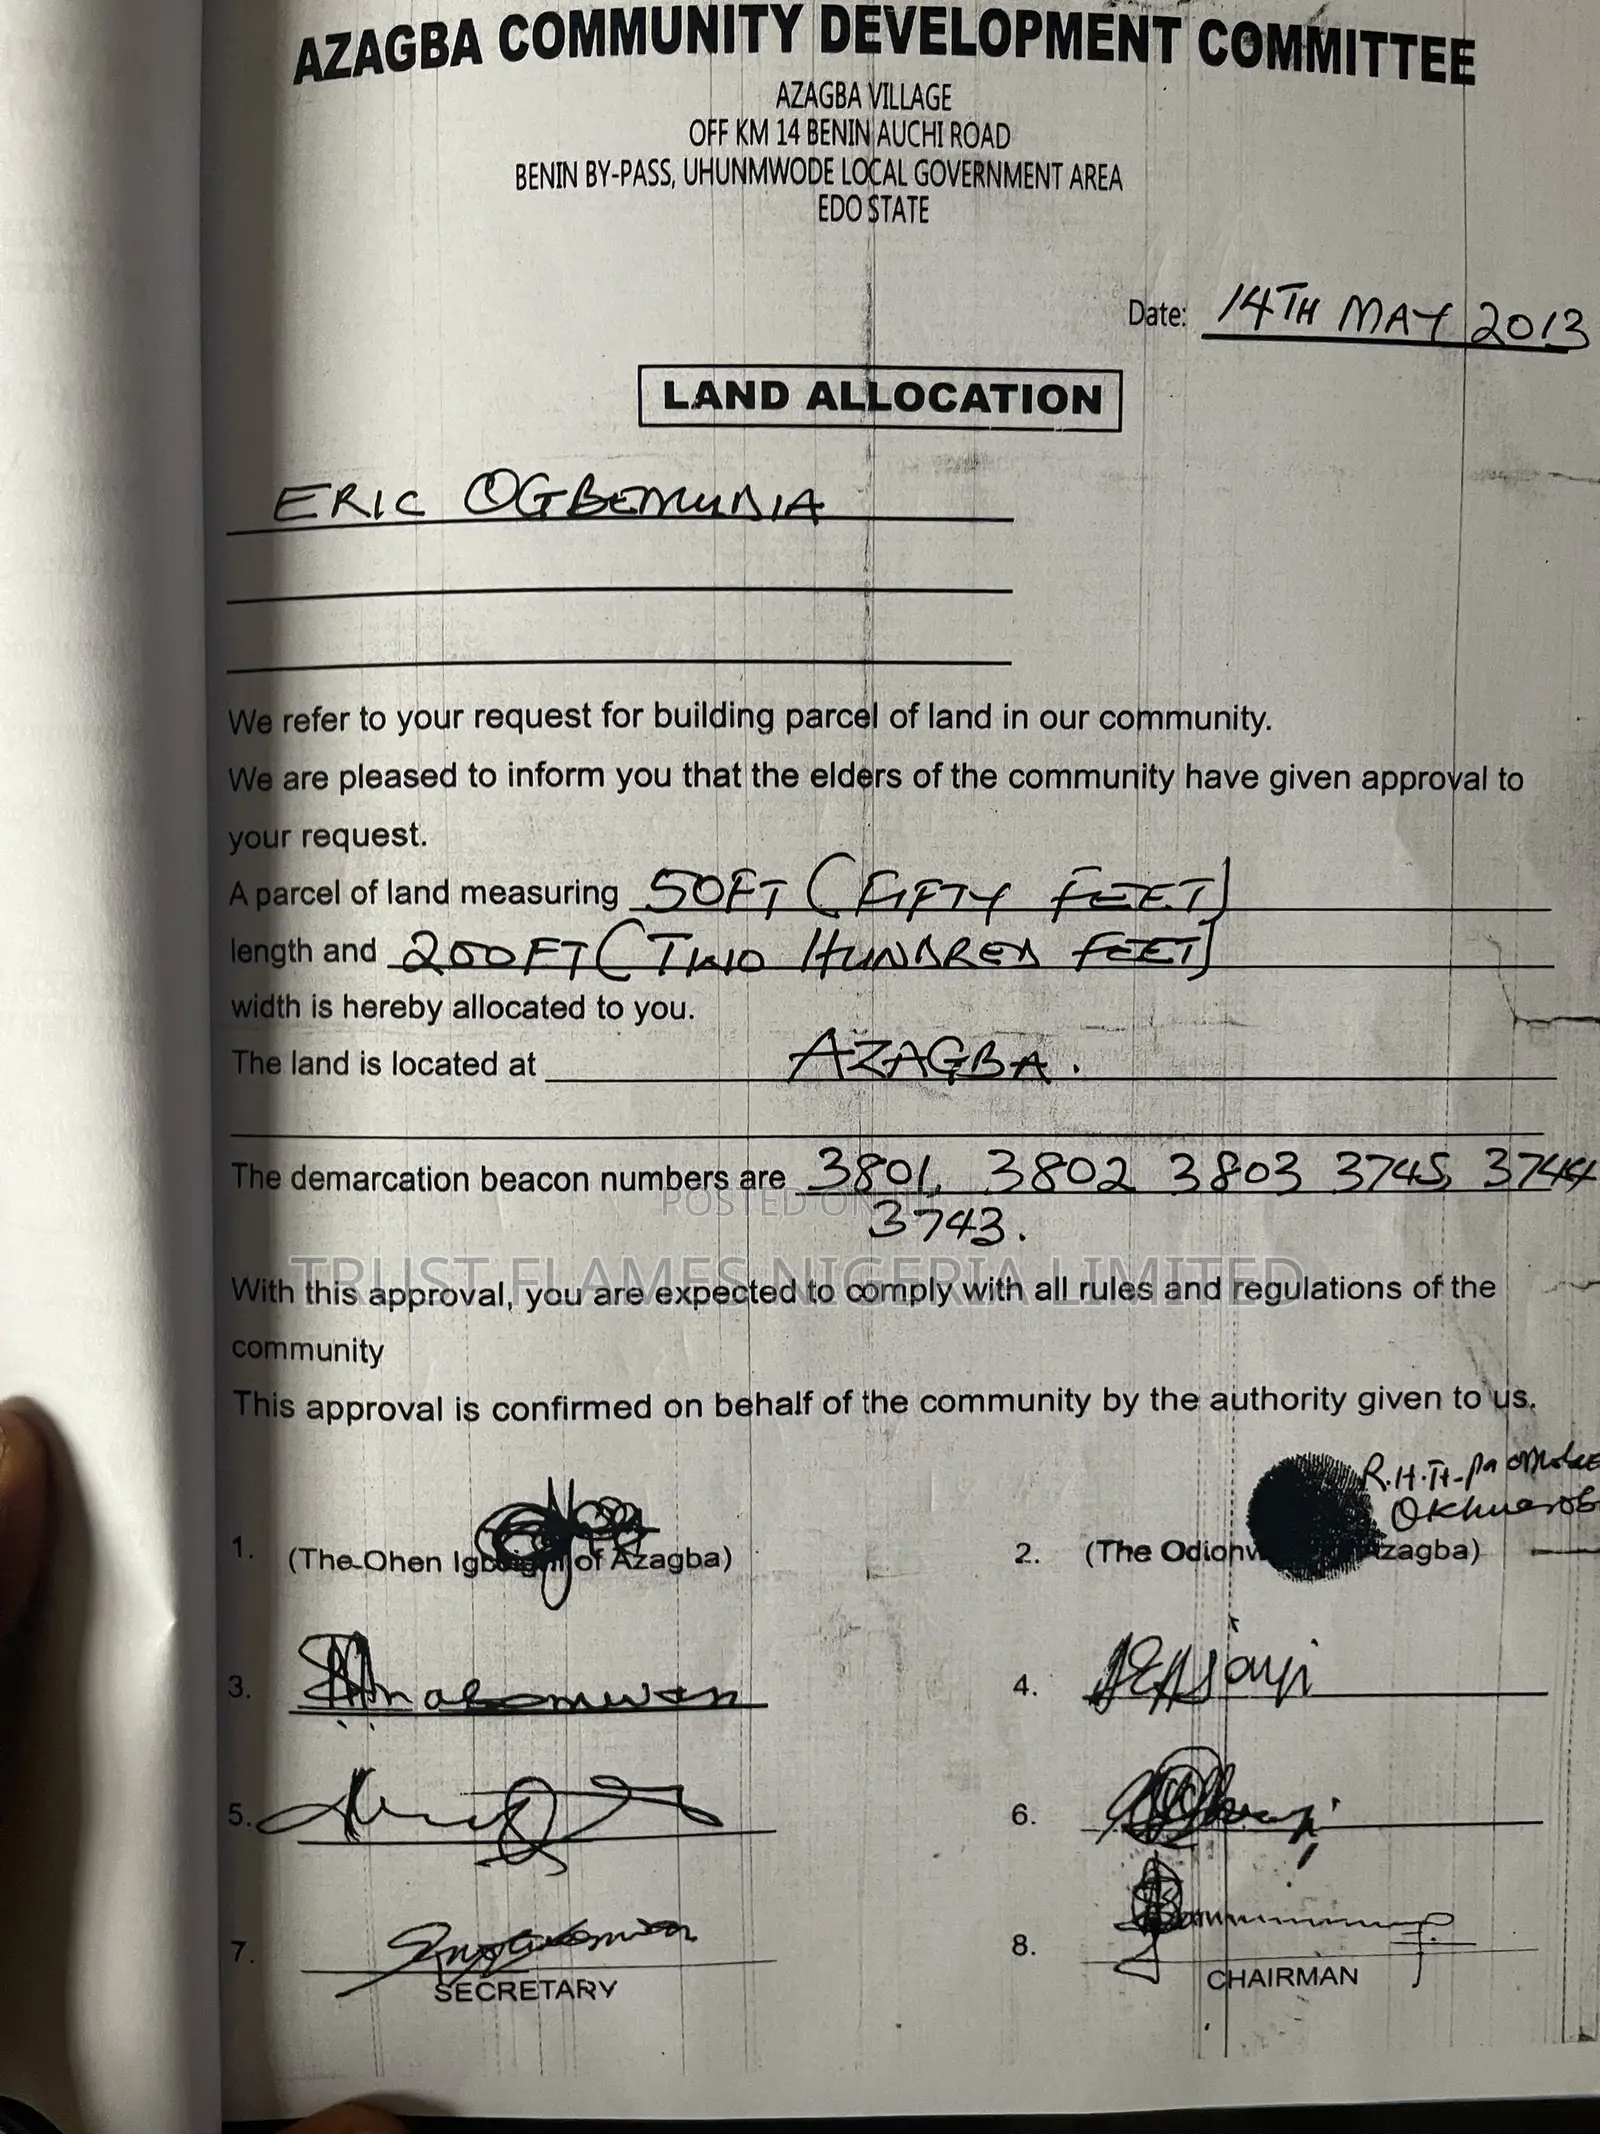 AZAGBA COMMUNITY DEVELOPMENT COMMITTEE
AZAGBA VILLAGE
OFF KM 14 BENIN AUCHI ROAD
BENIN BY-PASS, UHUNMWODE LOCAL GOVERNMENT AREA
EDO STATE
Date: 14TH MAY 2013
LAND ALLOCATION
ERIC OGBEMUDIA
We refer to your request for building parcel of land in our community.
We are pleased to inform you that the elders of the community have given approval to
your request.
A parcel of land measuring 50FT (FIFTY FEET)
length and 200FT (TWO HUNDRED FEET)
width is hereby allocated to you.
The land is located at AZAGBA.
The demarcation beacon numbers are 3801, 3802 3803 3745, 3744
3743.
POSTED ON
TRUST FLAMES NIGERIA LIMITED
With this approval, you are expected to comply with all rules and regulations of the
community
This approval is confirmed on behalf of the community by the authority given to us.
R.H.H. Pa
1. (The Ohen of Azagba)
2. (The Azagba)
3.
4.
5.
6.
7.
SECRETARY
8.
CHAIRMAN